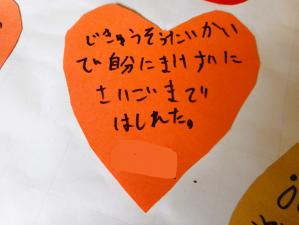 じきゅうそうたいかい
で自分にまけずに
さいごまで
はしれた。